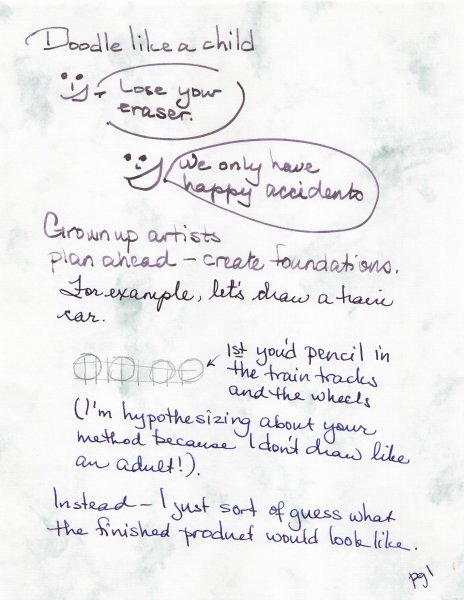 Doodle like a child
Lose your
eraser.
We only have
happy accidents
Grownup artists
plan ahead - create foundations.
For example, let's draw a train
car.
1st you'd pencil in
the train tracks
and the wheels
(I'm hypothesizing about your
method because I don't draw like
an adult!).
Instead - I just sort of guess what
the finished product would look like.
pg 1